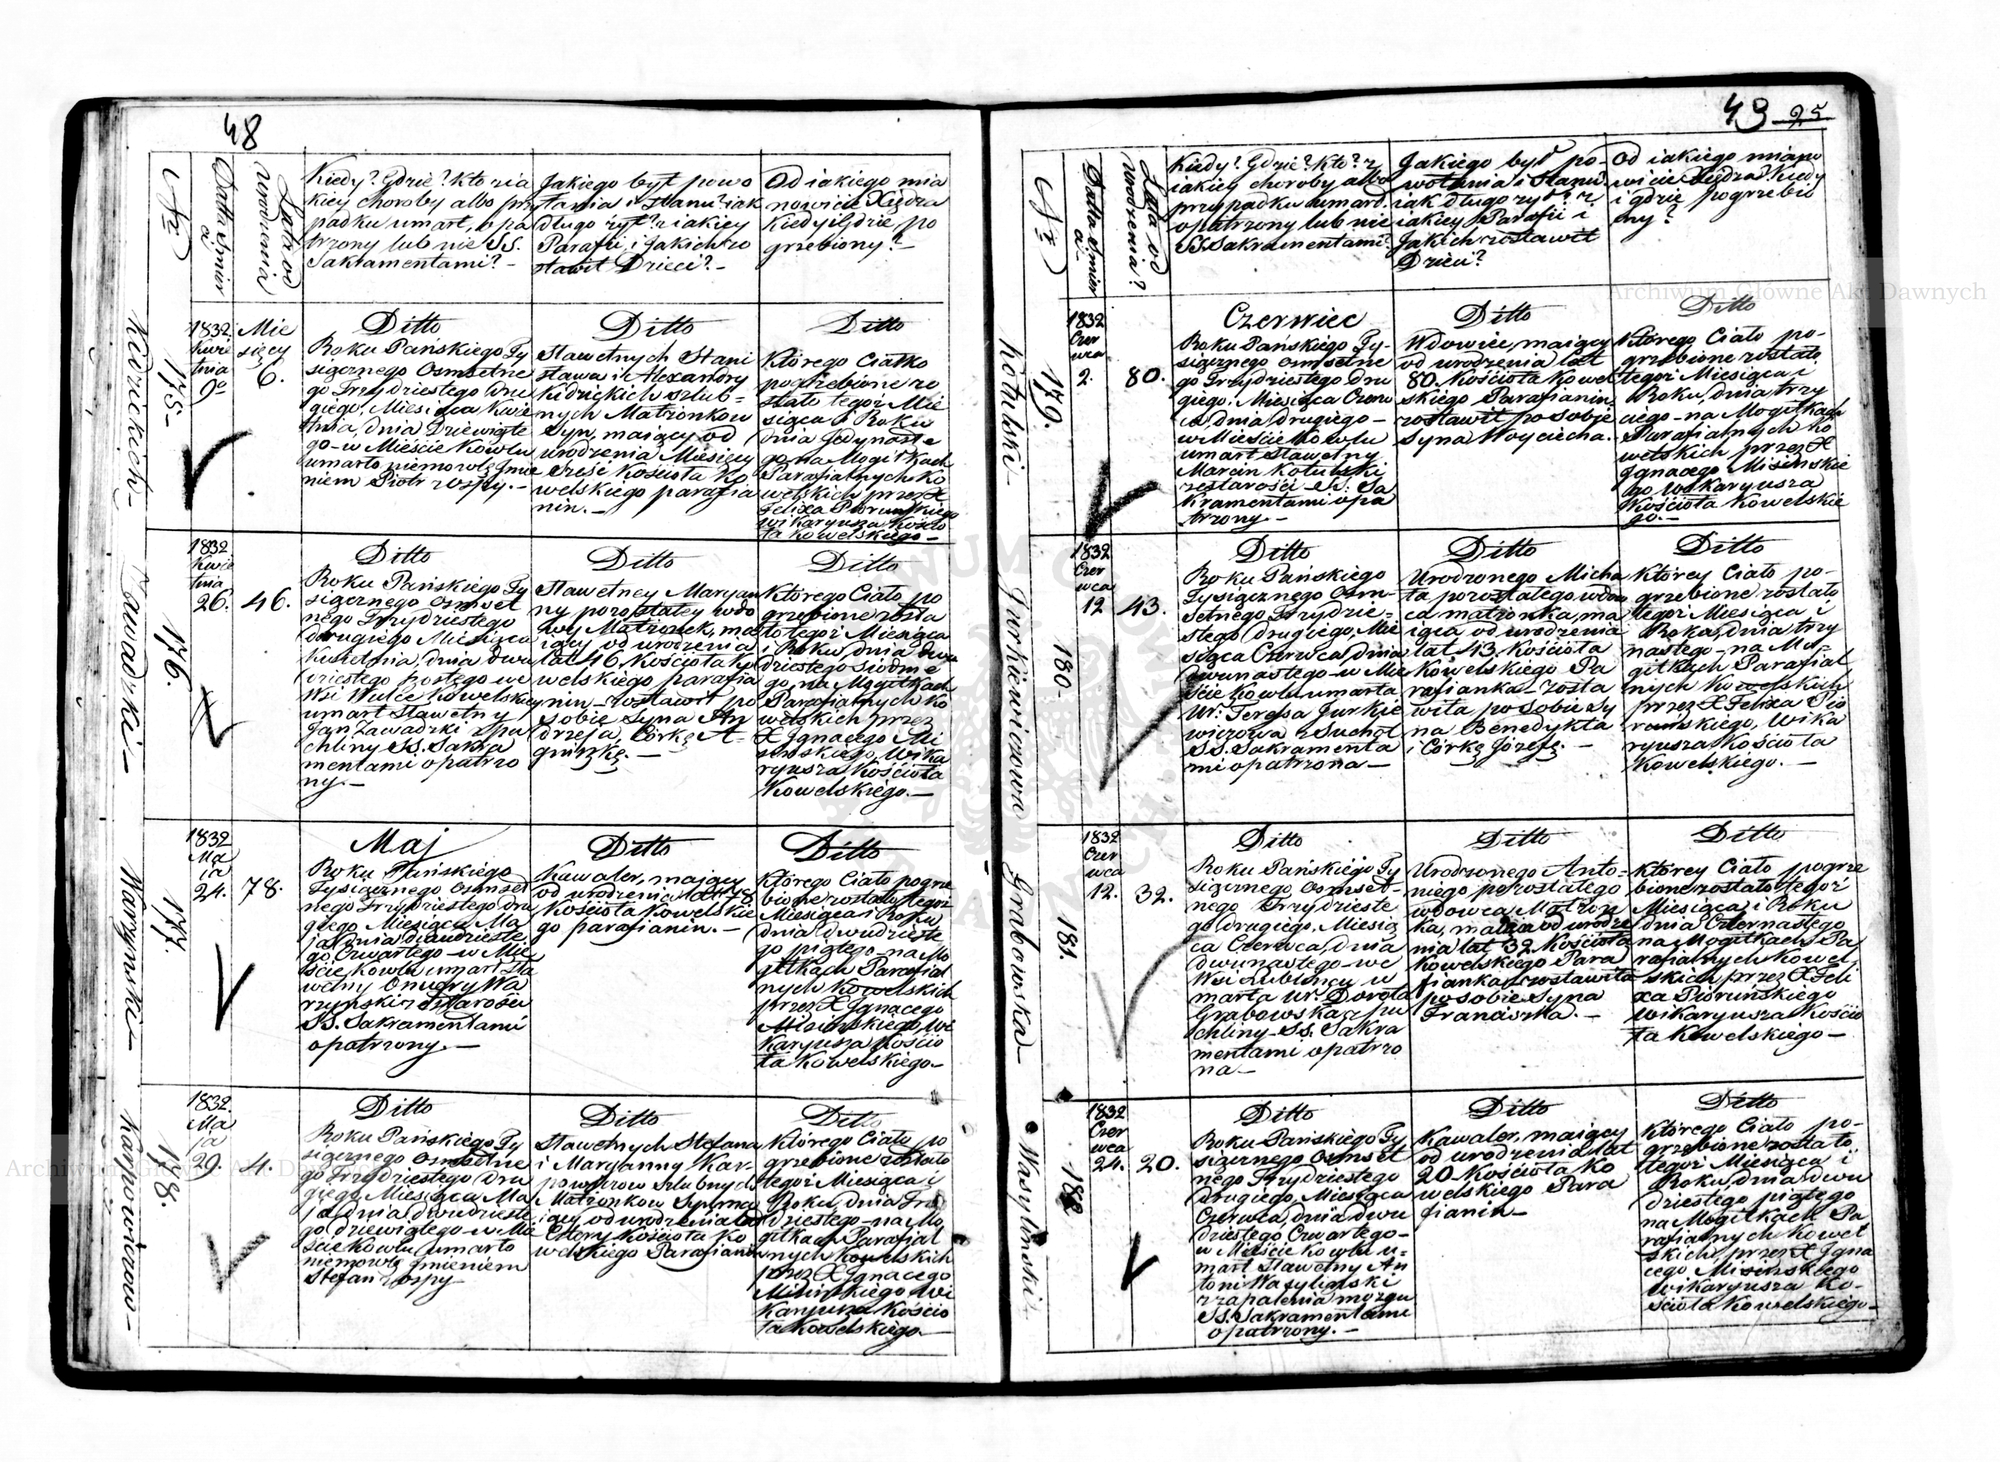 48
№
Datta śmier
ci
Lata od
urodzenia
Kiedy? Gdzie? Kto z ia
kiey choroby albo przy
padku umarł, opa
trzony lub nie SS.
Sakramentami? –
Jakiego był powo
łania i Stanu? iak
długo żył? z iakiey
Parafii, i Jakich zo
stawił Dzieci? –
Od iakiego mia
nowicie Xiędza
Kiedy i Gdzie po
grzebiony? –
175.
1832
Kwie
tnia
9º
Mie
sięcy
6.
Ditto
Roku Pańskiego Ty
siącznego Osmsetne
go Trzydziestego Dru
giego, Miesiąca Kwie
tnia, dnia Dziewiąte
go – w Mieście Kowlu
umarło niemowlę Jmie
niem Piotr z ospy. –
Ditto
Sławetnych Stani
sława i Alexandry
szlub=
nych Małżonków
Syn, maiący od
urodzenia Miesięcy
sześć Kościoła Ko
welskiego parafia
nin. –
Ditto
Którego Ciałko
pogrzebione zo
stało tegoż Mie
siąca i Roku
dnia Jedynaste
go na Mogiłkach
Parafialnych Ko
welskich przez X
Felixa Piorunskiego
wikaryusza Kościo
ła Kowelskiego –
Zawadzki –
176.
1832
Kwie
tnia
26.
46.
Ditto
Roku Pańskiego Ty
siącznego Osmset
nego Trzydziestego
drugiego Miesiąca
Kwietnia, dnia dwu
dziestego szostego we
Wsi Wulce Kowelskiey
umarł Sławetny
Jan Zawadzki z pu
chliny SS. Sakra
mentami opatrzo
ny. –
Ditto
Sławetney Maryan
ny pozostałey wdo
wy Małżonek, ma
iący od urodzenia
lat 46 Kościoła Ko
welskiego parafia
nin – zostawił po
sobie Syna An
drzeja, Córkę A=
gniszkę. –
Ditto
Którego Ciało po
grzebione zosta
ło tegoż Miesiąca
i Roku dnia dwu
dziestego siodme
go, na Mogiłkach
Parafialnych Ko
welskich przez
X Jgnacego Mi
sinskiego, Wika
ryusza Kościoła
Kowelskiego. –
Warzynski –
177.
1832
Ma
ia
24.
78.
Maj
Roku Pańskiego
Tysiącznego Osmset
nego Trzydziestego dru
giego Miesiąca Ma
ja dnia dwudzieste
go Czwartego – w Mie
ście Kowlu umarł Sła
wetny Onufry Wa
rzynski z Starości
SS. Sakramentami
opatrzony. –
Ditto
Kawaler, maiący
od urodzenia lat 78
Kościoła Kowelskie
go parafianin. –
Ditto
Którego Ciało pogrze
bione zostało tegoż
Miesiąca i Roku
dnia dwudzieste
go piątego – na Mo
giłkach Parafial
nych Kowelskich
przez X Jgnacego
Misinskiego Wi
karyusza Kościo
ła Kowelskiego –
178.
1832.
Ma
ja
29.
4.
Ditto
Roku Pańskiego Ty
siącznego Osmsetne
go Trzydziestego Dru
giego Miesiąca Ma
ja dnia dwudzieste
go dziewiątego – w Mie
ście Kowlu umarło
niemowlę Jmieniem
Stefan z ospy –
Ditto
Sławetnych Stefana
i Maryanny Kar
powiczow Szlubnych
Małżonkow Syn, ma
iący od urodzenia lat
Cztery Kościoła Ko
welskiego Parafianin
Ditto
Którego Ciało po
grzebione zostało
tegoż Miesiąca i
Roku, dnia Trzy
dziestego – na Mo
giłkach Parafial
nych Kowelskich
przez X Jgnacego
Misinskiego Wi
karyusza Kościo
ła Kowelskiego. –
49 25
№
Datta śmier
ci
Lata od
urodzenia?
Kiedy? Gdzie? Kto? z
iakiey choroby albo
przypadku umarł
opatrzony lub nie
SS. Sakramentami?
Jakiego był po-
wołania i Stanu
iak długo żył? z
iakiey Parafii i
Jakich zostawił
Dzieci?
Od iakiego miano
wicie Xiędza kiedy
i gdzie pogrzebio
ny?
Kotulski –
179.
1832
Czer
wca
2.
80.
Czerwiec
Roku Pańskiego Ty-
siącznego osmsetne
go Trzydziestego Dru
giego, Miesiąca Czerw
ca, dnia drugiego –
w Mieście Kowlu
umarł Sławetny
Marcin Kotulski
z starości – SS. Sa
kramentami opa
trzony. –
Ditto
Wdowiec, maiący
od urodzenia lat
80. Kościoła Kowel
skiego Parafianin,
zostawił po sobie
Syna Woyciecha. –
Ditto
Którego Ciało po-
grzebione zostało
tegoż Miesiąca i
Roku, dnia trzy
ciego – na Mogiłkach
Parafialnych Ko
welskich przez X
Jgnacego Misinskie
go Wikaryusza
Kościoła Kowelskie
go. –
Jurkiewiczowa
180.
1832
Czer
wca
12
43.
Ditto
Roku Pańskiego
Tysiącznego Osm-
setnego Trzydzie-
stego drugiego, Mie
siąca Czerwca, dnia
dwunastego – w Mie
ście Kowlu umarła
Ur: Teresa Jurkie
wiczowa z Suchot
SS. Sakramenta
mi opatrzona –
Ditto
Urodzonego Micha
ła pozostałego wdow
ca małżonka, ma
iąca od urodzenia
lat 43 Kościoła
Kowelskiego Pa
rafianka – zosta
wiła po sobie Sy
na Benedykta
i Córkę Józefę. –
Ditto
Którey Ciało po-
grzebione zostało
tegoż Miesiąca i
Roku, dnia trzy
nastego – na Mo-
giłkach Parafial
nych Kowelskich
przez X Felixa Pio
runskiego, Wika
ryusza Kościoła
Kowelskiego. –
Grabowska –
181.
1832
Czer
wca
12.
32.
Ditto
Roku Pańskiego Ty
siącznego, Osmset-
nego Trzydzieste
go drugiego, Miesią
ca Czerwca, dnia
dwunastego – we
Wsi Lublincu u
marła Ur: Dorota
Grabowska z pu
chliny – SS. Sakra
mentami opatrzo
na –
Ditto
Urodzonego Anto-
niego pozostałego
wdowca Małżon
ka, maiąca od urodze
nia lat 32 Kościoła
Kowelskiego Para
fianka, zostawiła
po sobie Syna
Franciszka. –
Ditto
Którey Ciało pogrze
bione zostało tegoż
Miesiąca i Roku
dnia Czternastego
na Mogiłkach Pa
rafialnych Kowel
skich, przez X Feli
xa Piorunskiego
wikaryusza Kościo
ła Kowelskiego –
Wasylinski
182
1832
Czer
wca
24.
20.
Ditto
Roku Pańskiego Ty
siącznego Osmset
nego Trzydziestego
drugiego, Miesiąca
Czerwca, dnia dwu
dziestego Czwartego –
w Mieście Kowlu u=
marł Sławetny An
toni Wasylinski
z zapalenia mozgu
SS. Sakramentami
opatrzony. –
Ditto
Kawaler, maiący
od urodzenia lat
20 Kościoła Ko
welskiego Para
fianin –
Ditto
Którego Ciało po-
grzebione zostało
tegoż Miesiąca i
Roku, dnia dwu
dziestego piątego
na Mogiłkach Pa
rafialnych Kowel
skich, przez X Jgna
cego Misinskiego
wikaryusza Ko-
ścioła Kowelskiego –
Archiwum Główne Akt Dawnych
Archiwum Główne Akt Dawnych